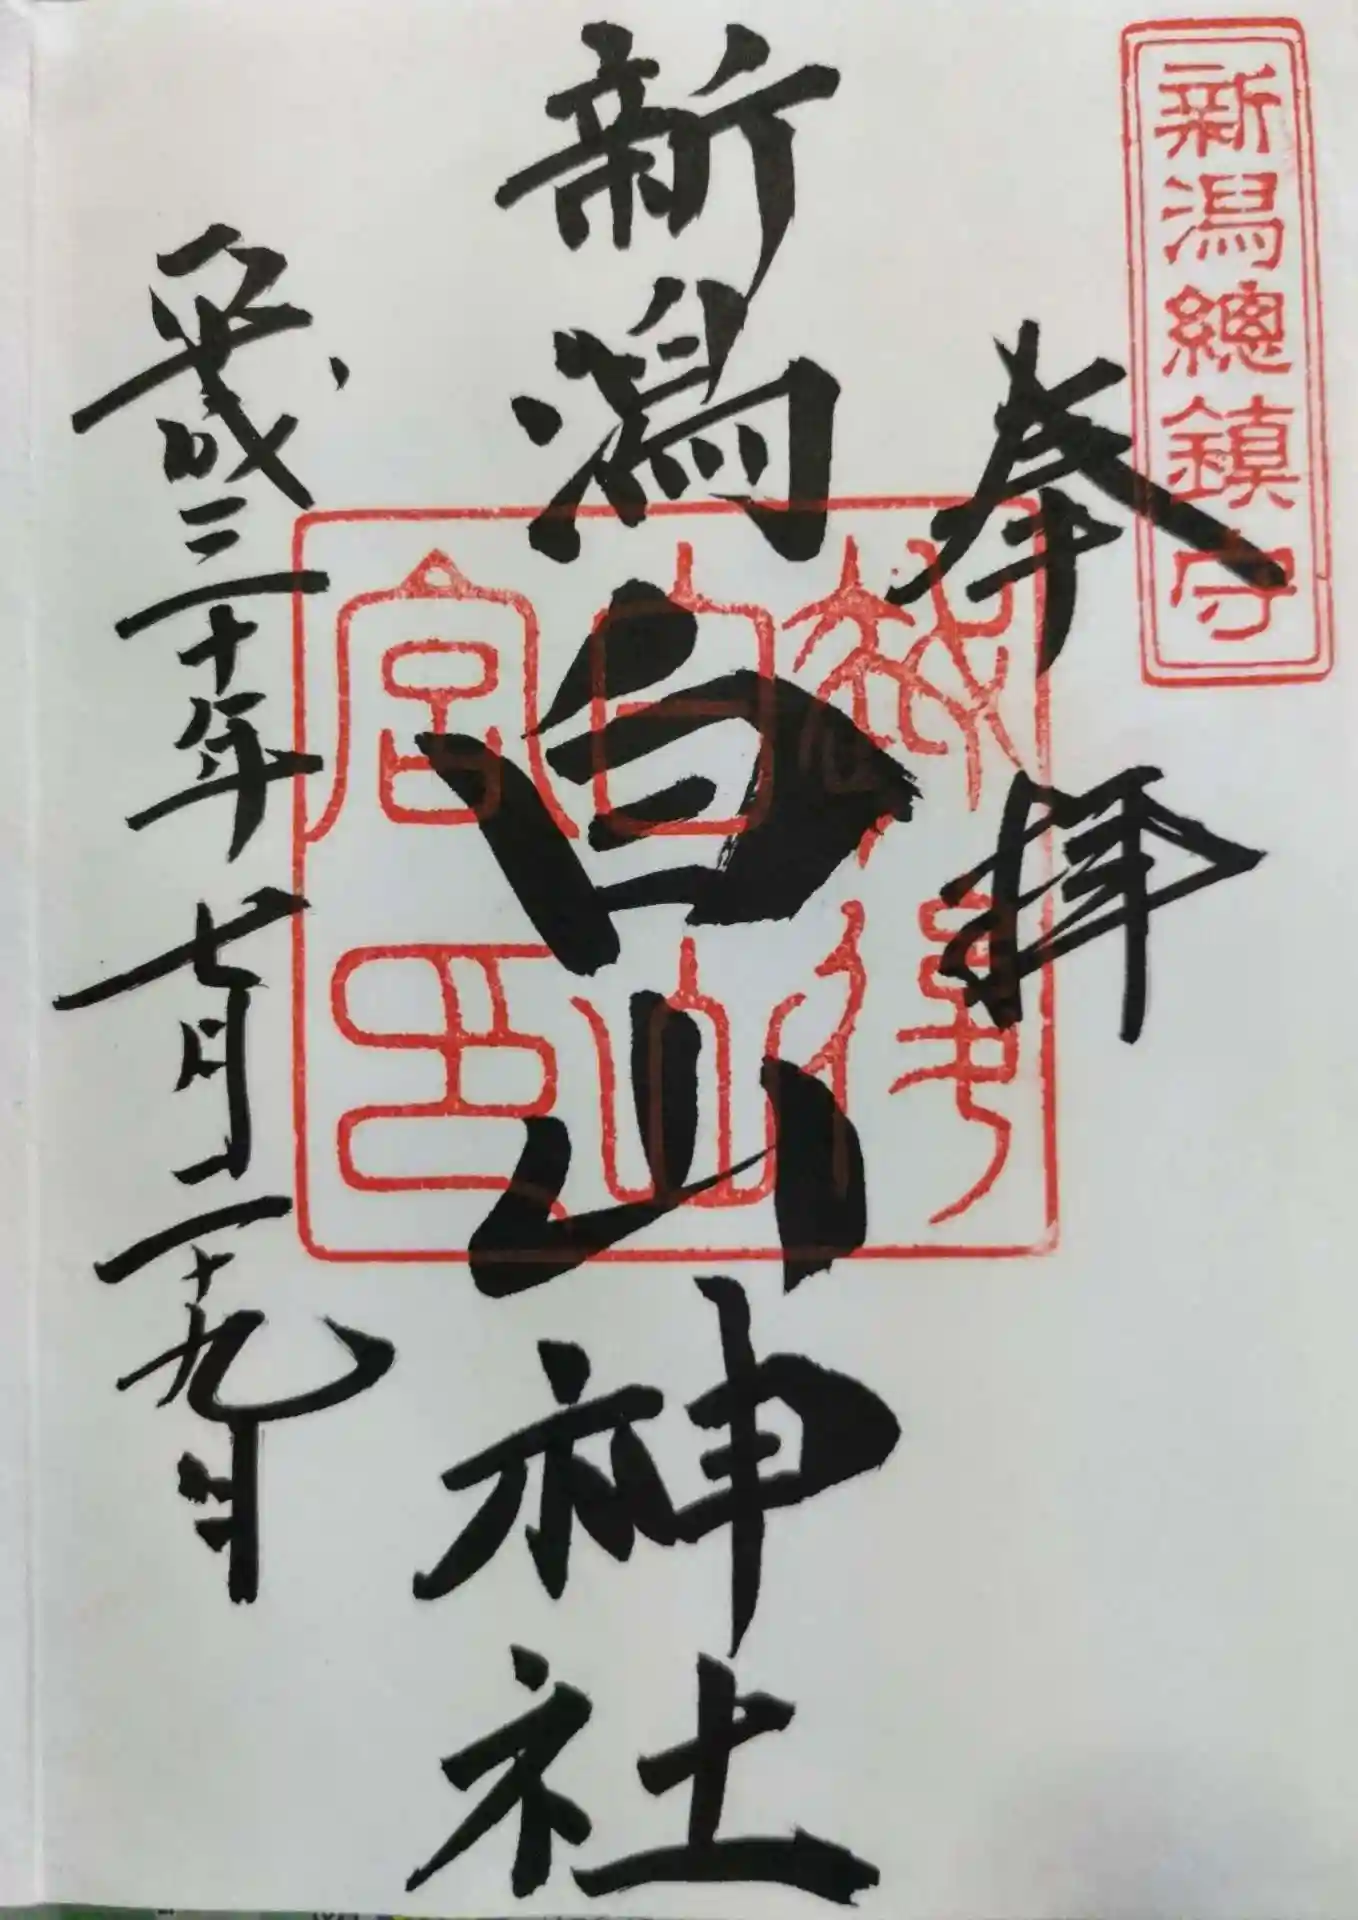 新潟總鎮守
奉拝
新潟白山神社
越後
白山
宮印
平成三十年七月二十九日